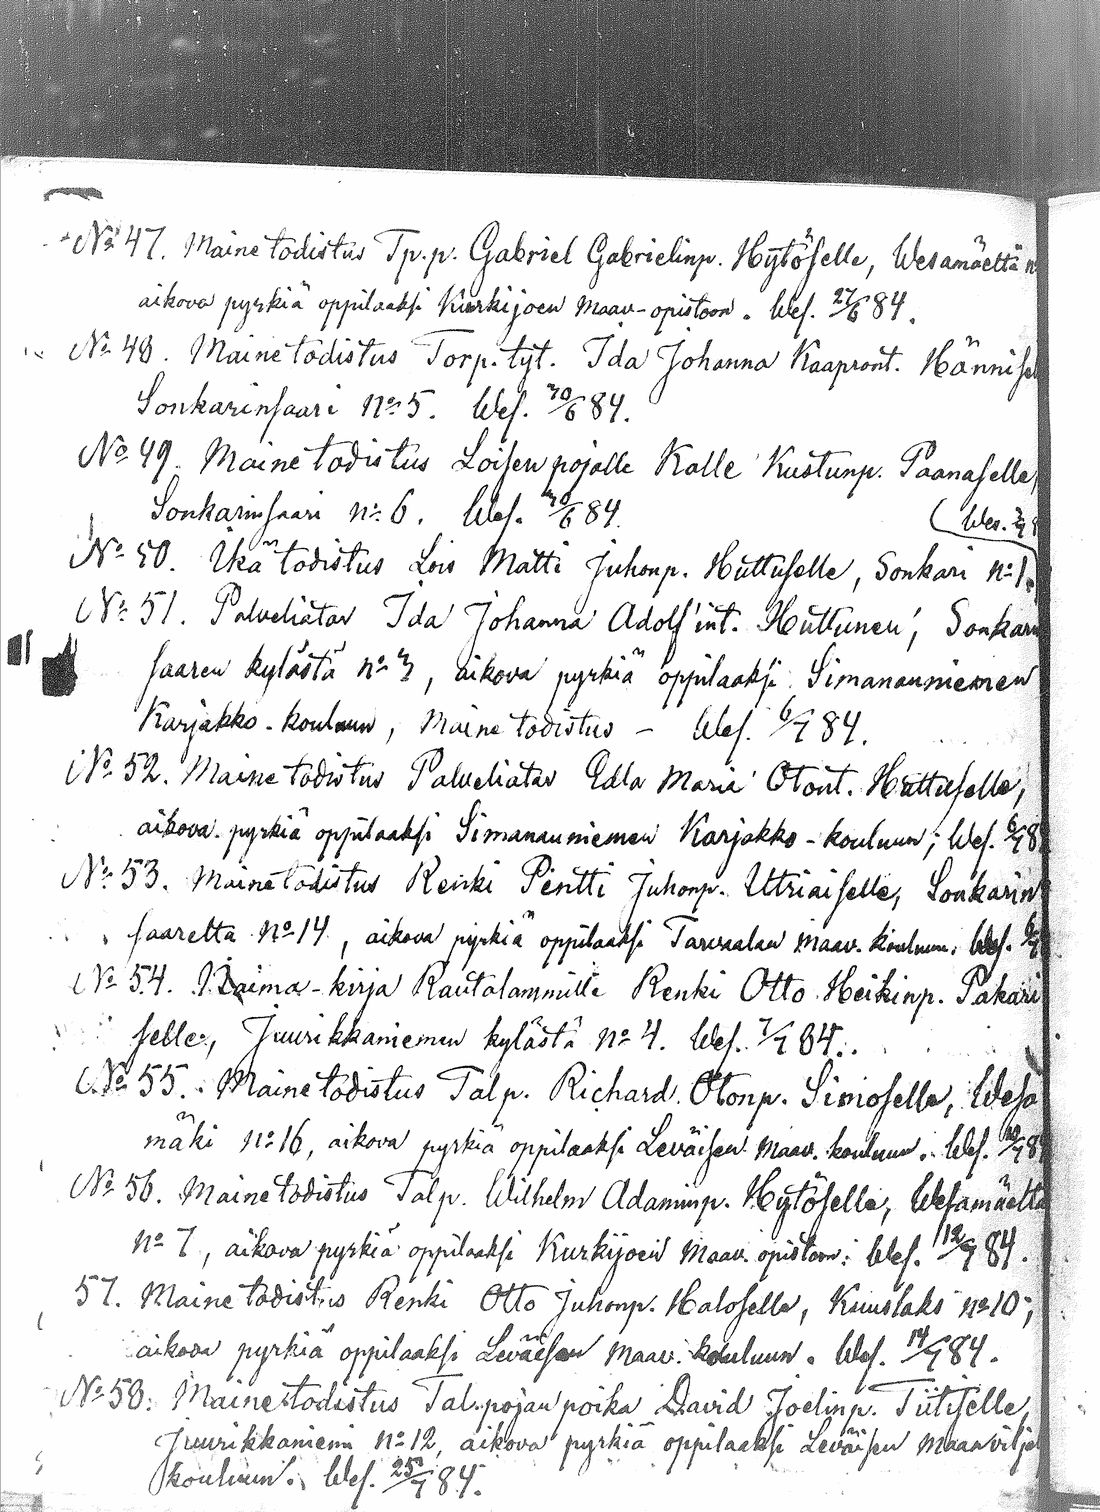 No 47. Maine todistus Tp.p. Gabriel Gabrielinp. Hytöselle, Wesamäeltä
aikova pyrkiä oppilaaksi Kurkijoen maav-opistoon. Wes. 27/6 84.
No 48. Maine todistus Torp. tyt. Ida Johanna Kaapront. Hännisel
Sonkarinsaari no 5. Wes. 30/6 84.
No 49. Maine todistus Loisen pojalle Kalle Kustunp. Paanaselle,
Sonkarinsaari no 6. Wes. 30/6 84.
(Wes.
No 50. Ikä todistus Lois Matti Juhonp. Huttuselle, Sonkari no 1.
No 51. Palveliatar Ida Johanna Adolf'int. Huttunen, Sonkarin
saaren kylästä no 3, aikova pyrkiä oppilaaksi Simananniemen
Karjakko-kouluun, Maine todistus – Wes. 6/7 84.
No 52. Maine todistus Palveliatar Edla Maria Otont. Huttuselle,
aikova pyrkiä oppilaaksi Simananniemen Karjakko-kouluun; Wes. 6/7 8
No 53. Maine todistus Renki Pentti Juhonp. Utriaiselle, Sonkarin
saarelta no 14, aikova pyrkiä oppilaaksi Tarvaalan maav. kouluun. Wes.
No 54. Naima-kirja Rautalammille Renki Otto Heikinp. Pakari
selle, Juurikkaniemen kylästä no 4. Wes. 7/7 84.
No 55. Maine todistus Talp. Richard Otonp. Simoselle, Wesa
mäki no 16, aikova pyrkiä oppilaaksi Leväisen maav. kouluun. Wes. 10/7 8
No 56. Maine todistus Talp. Wilhelm Adaminp. Hytöselle, Wesamäeltä
no 7, aikova pyrkiä oppilaaksi Kurkijoen maav. opistoon: Wes. 12/7 84.
57. Maine todistus Renki Otto Juhonp. Haloselle, Kuuslaks no 10,
aikova pyrkiä oppilaaksi Leväisen maav. kouluun. Wes. 14/7 84.
No 58. Maine todistus Tal. pojan poika David Joelinp. Tiitiselle
Juurikkaniemi no 12, aikova pyrkiä oppilaaksi Leväisen maanvilje
kouluun. Wes. 25/7 84.